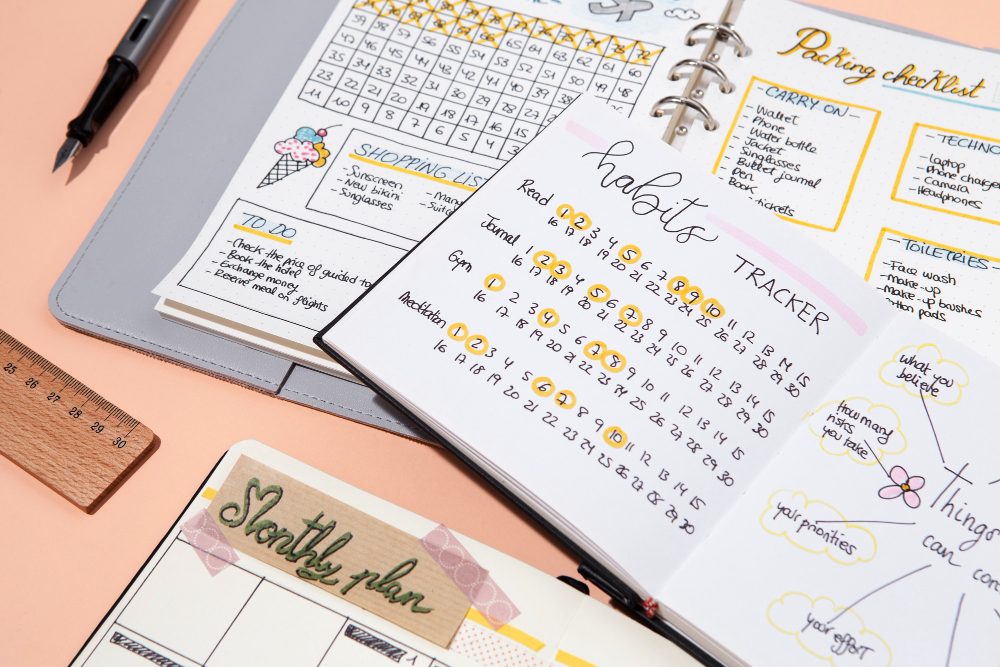 65 64 63 62 61 60
59 58 57 56 55 54 53 52 51 50 49 48
47 46 45 44 43 42 41 40
35 34 33 32 31 30 29 28
23 22 21 20 19 18 17 16 15
11 10 9 8 7 6 5 4 3
SHOPPING LIST
- Sunscreen
- New bikini
- Sunglasses
TO DO
- Check the price of guided to
- Book the hotel
- Exchange money
- Reserve meal on flights
Packing checklist
- CARRY ON -
- Wallet
- Phone
- Water bottle
- Jacket
- Sunglasses
- Bullet journal
- Pen
- Book
tickets
- TECHNO
- Laptop
- Phone charge
- Camera
- Headphones
- TOILETRIES -
- Face wash
- Make-up
- Make-up brushes
pads
habits
TRACKER
Read 1 2 3 4 5 6 7 8 9 10 11 12 13 14 15
16 17 18 19 20 21 22 23 24 25 26 27 28 29 30
Journal 1 2 3 4 5 6 7 8 9 10 11 12 13 14 15
16 17 18 19 20 21 22 23 24 25 26 27 28 29 30
Gym 1 2 3 4 5 6 7 8 9 10 11 12 13 14 15
16 17 18 19 20 21 22 23 24 25 26 27 28 29 30
Meditation 1 2 3 4 5 6 7 8 9 10 11 12 13 14 15
16 17 18 19 20 21 22 23 24 25 26 27 28 29 30
what you
believe
How many
risks
you take
your priorities
your effort
Things
can con
25 26 27 28 29 30
Monthly plan